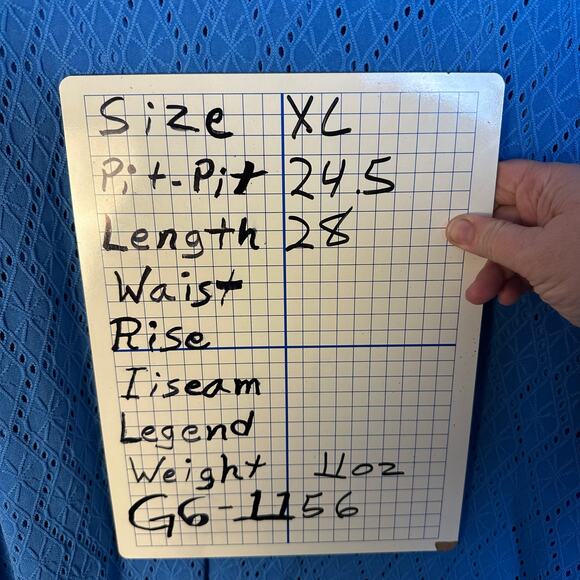 Size XL
Pit-Pit 24.5
Length 28
Waist
Rise
Iiseam
Legend
Weight 11oz
G6-1156